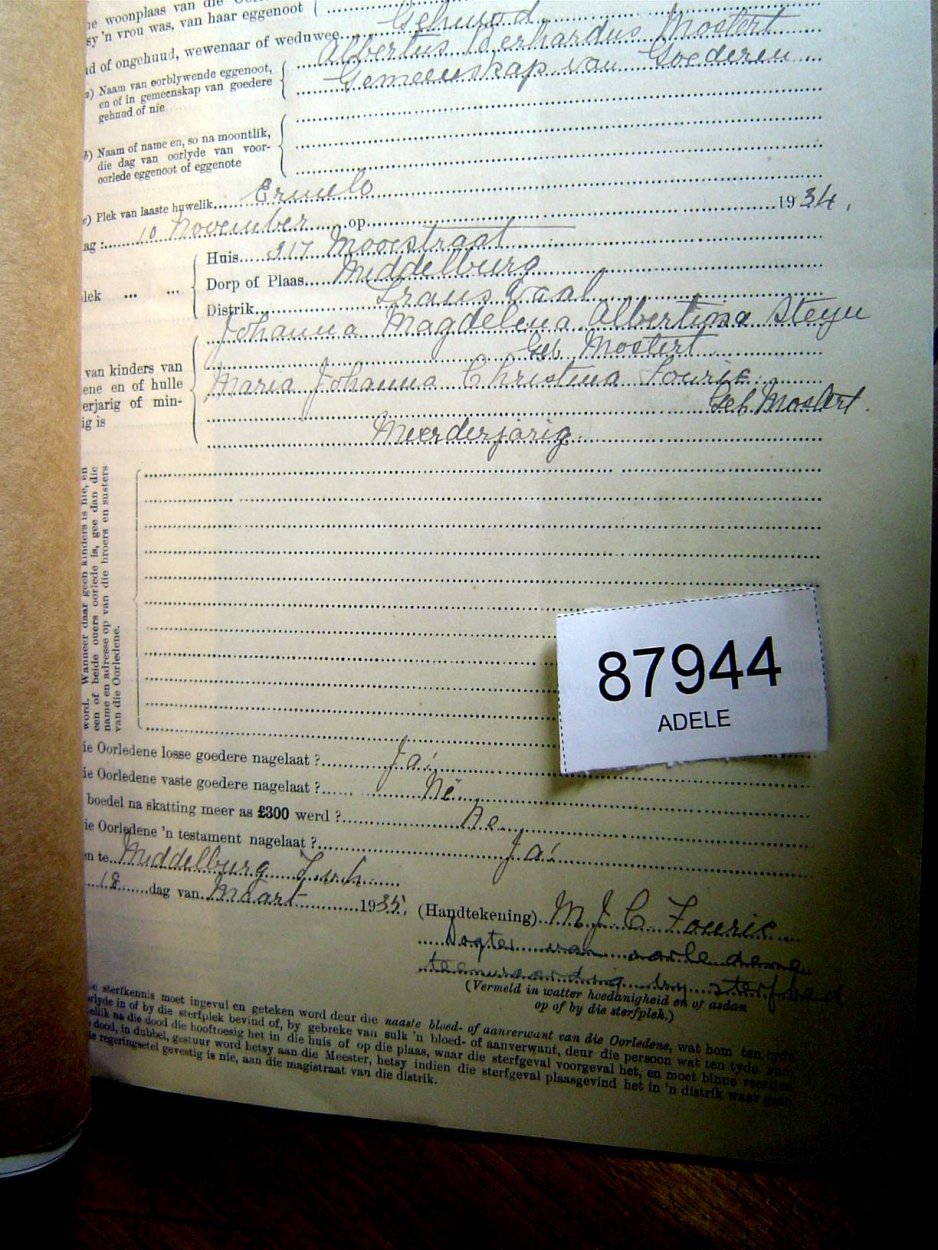 woonplaas van die
sy 'n vrou was, van haar eggenoot
of ongehuud, wewenaar of weduwee Gehuwd
Naam van oorblywende eggenoot, en of in gemeenskap van goedere gehuud of nie
Albertus Berhardus Mostert
Gemeenskap van Goederen
b) Naam of name en, so na moontlik, die dag van oorlyde van voor-oorlede eggenoot of eggenote
c) Plek van laaste huwelik Ermelo
ag: 10 November op 1934.
Huis 217 Mooistraat
lek ... ...
Dorp of Plaas Middelburg
Distrik Transvaal
van kinders van
ene en of hulle
erjarig of min-
ig is
Johanna Magdelena Albertina Steyn
Geb. Mostert
Maria Johanna Christina Fourie
Geb. Mostert.
Meerderjarig.
word. Wanneer daar geen kinders is nie, en
een of beide ouers oorlede is, gee dan die
name en adresse op van die broers en susters
van die Oorledene.
87944
ADELE
ie Oorledene losse goedere nagelaat? Ja.
ie Oorledene vaste goedere nagelaat? Né.
boedel na skatting meer as £300 werd? Ne.
ie Oorledene 'n testament nagelaat? Ja.
n te Middelburg
18 dag van Maart 1935.
(Handtekening) M J C Fourie
Dogter van oorledene
teenwoordig by sterfbed
(Vermeld in watter hoedanigheid en of asdan
op of by die sterfplek.)
e sterfkennis moet ingevul en geteken word deur die naaste bloed- of aanverwant van die Oorledene, wat hom ten tyde
rlyde in of by die sterfplek bevind of, by gebreke van sulk 'n bloed- of aanverwant, deur die persoon wat ten tyde van
elik na die dood die hooftoesig het in die huis of op die plaas, waar die sterfgeval voorgeval het, en moet binne veertien
dood, in dubbel, gestuur word hetsy aan die Meester, hetsy indien die sterfgeval plaasgevind het in 'n distrik waar geen
e regeringsetel gevestig is nie, aan die magistraat van die distrik.